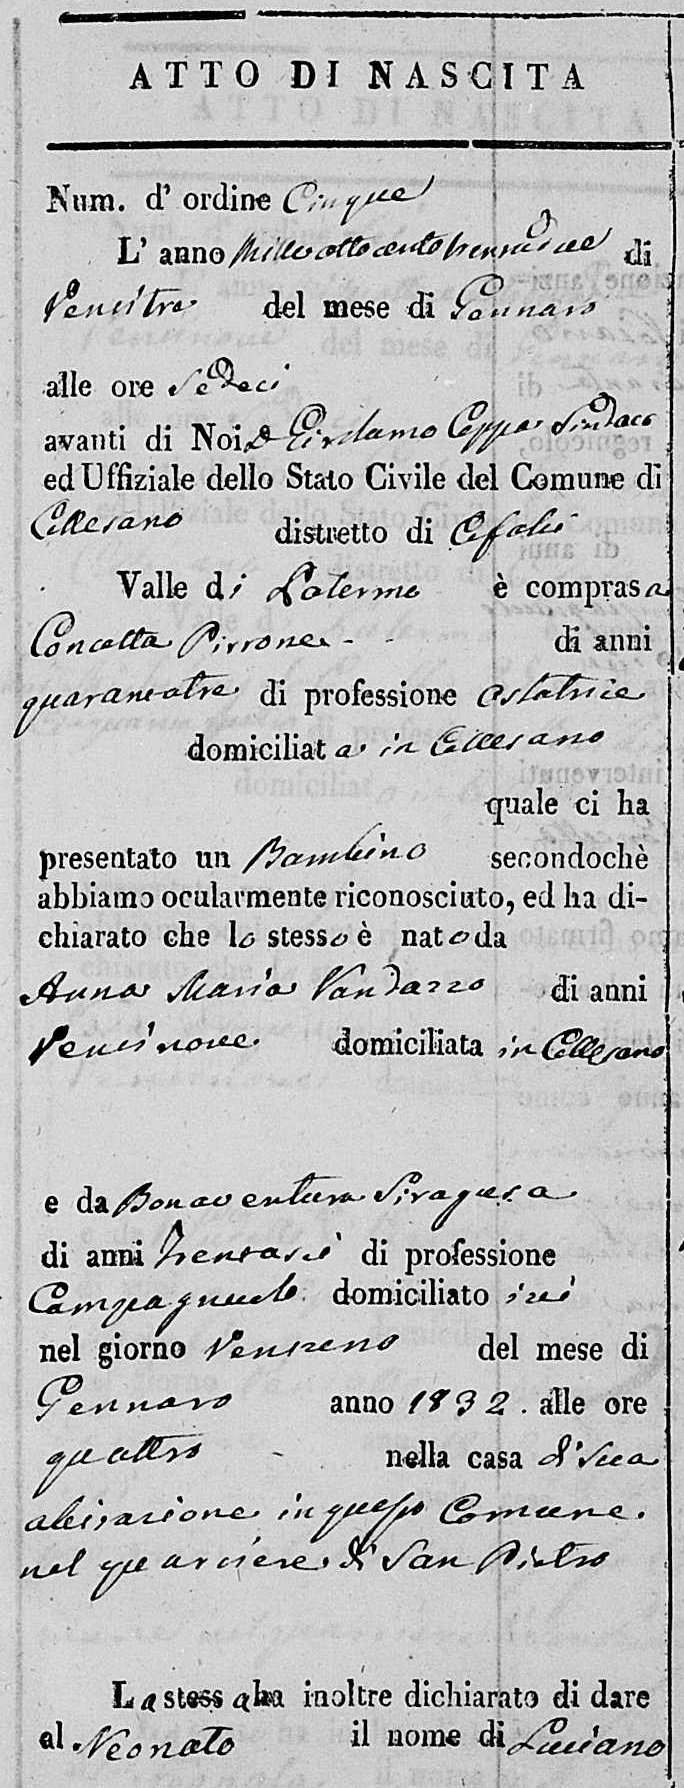 ATTO DI NASCITA
Num. d' ordine Cinque
L' anno Milleottocentotrentadue di
Ventitre del mese di Gennaro
alle ore Sedeci
avanti di Noi D Girolamo Coppa Sindaco
ed Uffiziale dello Stato Civile del Comune di
Collesano distretto di Cefalù
Valle di Palermo è comprasa
Concetta Pirrone di anni
quarantatre di professione ostatrice
domiciliata in Collesano
quale ci ha
presentato un Bambino secondochè
abbiamo ocularmente riconosciuto, ed ha di-
chiarato che lo stesso è nato da
Anna Maria Vandazzo di anni
Ventinove domiciliata in Collesano
e da Bonaventura Siragusa
di anni trentasei di professione
Campagnuolo domiciliato ivi
nel giorno Ventuno del mese di
Gennaro anno 1832. alle ore
quattro nella casa di sua
abitazione in questo Comune.
nel quartiere di San Pietro
La stessa ha inoltre dichiarato di dare
al Neonato il nome di Luciano